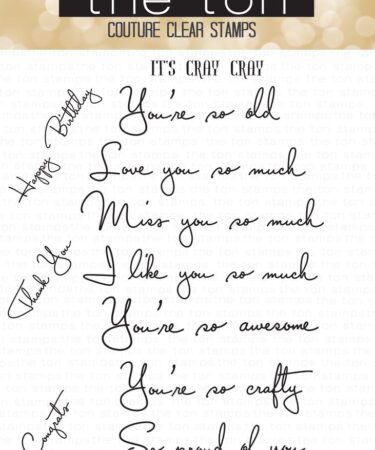 the ton
COUTURE CLEAR STAMPS
IT'S CRAY CRAY
Happy Birthday
You're so old
Love you so much
Miss you so much
Thank You
I like you so much
You're so awesome
You're so crafty
Congrats
So proud of you